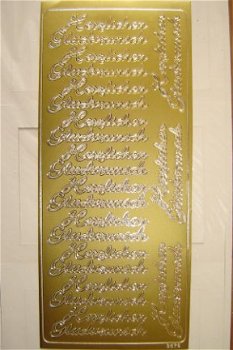 Herzlichen
Glückwunsch
Herzlichen
Glückwunsch
Herzlichen
Glückwunsch
Herzlichen
Glückwunsch
Herzlichen
Glückwunsch
Herzlichen
Glückwunsch
Herzlichen
Glückwunsch
Herzlichen
Glückwunsch
Herzlichen
Glückwunsch
Herzlichen
Glückwunsch
Herzlichen
Glückwunsch
Herzlichen
Glückwunsch